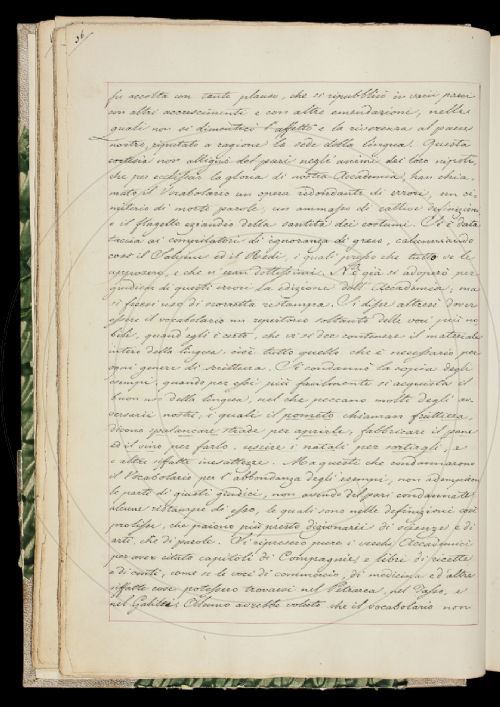 36
fu accolta con tanto plauso, che si ripubblicò in varii paesi
con altri accrescimenti e con altre emendazioni, nelle
quali non si dimenticò l'affetto e la riverenza al paese
nostro, riputato a ragione la sede della lingua. Questa
cortesia non allignò del pari negli animi dei loro nipoti,
che per ecclissar la gloria di nostra Accademia, han chia-
mato il Vocabolario un opera ridondante di errori, un ci-
miterio di morte parole, un ammasso di cattive definizioni,
e il flagello eziandio della santità dei costumi. Si è data
taccia ai compilatori di ignoranza di greco, calunniando
così il Salvini ed il Redi, i quali
approvarono, e che vi eran dottissimi. Nè già si adoperò per
giudicar di questi errori la edizione dell'Accademia, ma
si fecer uso di scorretta ristampa. Si disse altresì dover
essere il vocabolario un repertorio soltanto delle voci più no-
bili, quand'egli è certo, che vi si dee contenere il materiale
intero della lingua, cioè tutto quello che è necessario per
ogni genere di scrittura. Si condannò la copia degli
esempi, quando per essi più facilmente si acquista il
buon uso della lingua, nel che peccano molti degli av-
versarii nostri, i quali il pometo chiaman frutteria,
dicono spalancare strade per aprirle, fabbricare il pane
ed il vino per farlo, uscire i natali per sortirgli, e
e altre siffatte inesattezze. Ma questi che condannarono
il Vocabolario per l'abbondanza degli esempi, non adempion
le parti di giusti giudici, non avendo del pari condannate
alcune ristampe di esso, le quali sono nelle definizioni così
prolisse, che paiono più presto dizionarii di scienze e di
arti, che di parole. Si ripresero pure i vecchi Accademici
per aver citato capitoli di Compagnie, e libri di ricette
e di conti, come se le voci di commercio, di medicina ed altre
siffatte cose potessero trovarsi nel Petrarca, nel Tasso, e
nel Galileo. Alcuno avrebbe voluto che il vocabolario non